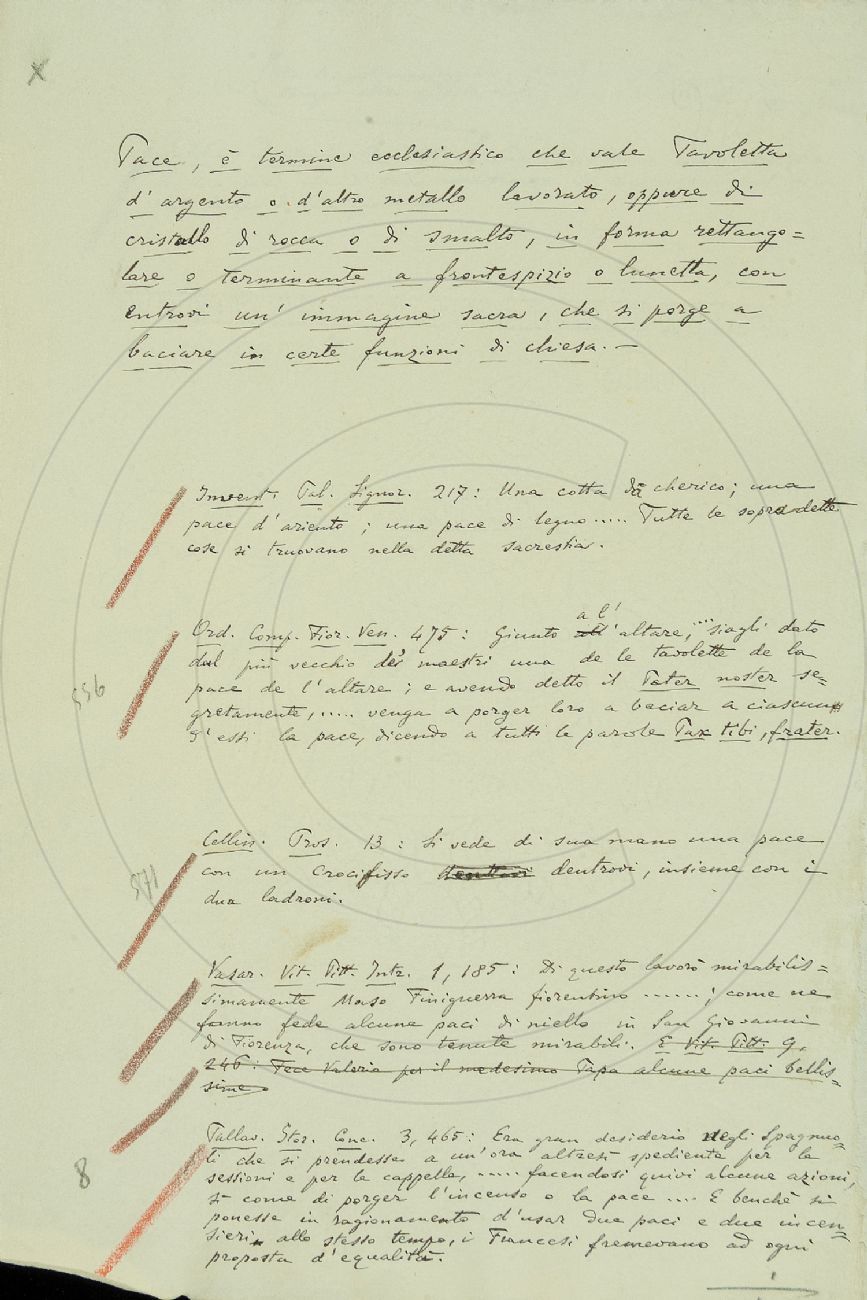 x
Pace, è termine ecclesiastico che vale Tavoletta
d'argento o d'altro metallo lavorato, oppure di
cristallo di rocca o di smalto, in forma rettango=
lare o terminante a frontespizio o lunetta, con
entrovi un' immagine sacra, che si porge a
baciare in certe funzioni di chiesa. —
Invent. Pal. Signor. 217: Una cotta da cherico; una
pace d'ariento; una pace di legno..... Tutte le sopradette
cose si truovano nella detta sacrestia.
a l'
Ord. Comp. Fior. Ven. 475: Giunto all'altare, ... siagli dato
dal più vecchio de' maestri una de le tavolette de la
556
pace de l'altare; e avendo detto il Pater noster se=
gretamente, ..... venga a porger loro a baciar a ciascuno
d'essi la pace, dicendo a tutti le parole Pax tibi, frater.
Cellin. Pros. 13: Si vede di sua mano una pace
571
con un Crocifisso dentrovi dentrovi, insieme con i
dua ladroni.
Vasar. Vit. Pitt. Intr. 1, 185: Di questo lavorò mirabilis=
simamente Maso Finiguerra fiorentino ......; come ne
fanno fede alcune paci di niello in San Giovanni
di Fiorenza, che sono tenute mirabili. E Vit. Pitt. 9,
246: Fece Valerio per il medesimo Papa alcune paci bellis=
sime
Pallav. Stor. Conc. 3, 465: Era gran desiderio negli Spagnuo=
li che si prendesse a un'ora altresì spediente per le
8
sessioni e per le cappelle, ..... facendosi quivi alcune azioni,
sì come di porger l'incenso o la pace .... E benchè si
ponesse in ragionamento d'usar due paci e due incen=
sieri allo stesso tempo, i Francesi fremevano ad ogni
proposta d'equalità.